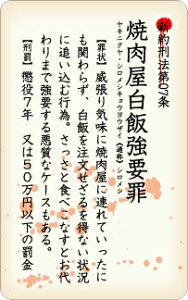 新約刑法第07条
焼肉屋白飯強要罪
ヤキニクヤ・シロメシキョウヨウザイ (通称) シロメシ
【罪状】威張り気味に焼肉屋に連れていったに
も関わらず、白飯を注文せざるを得ない状況
に追い込む行為。さっさと食べこなすとお代
わりまで強要する悪質なケースもある。
【刑罰】懲役7年 又は50万円以下の罰金